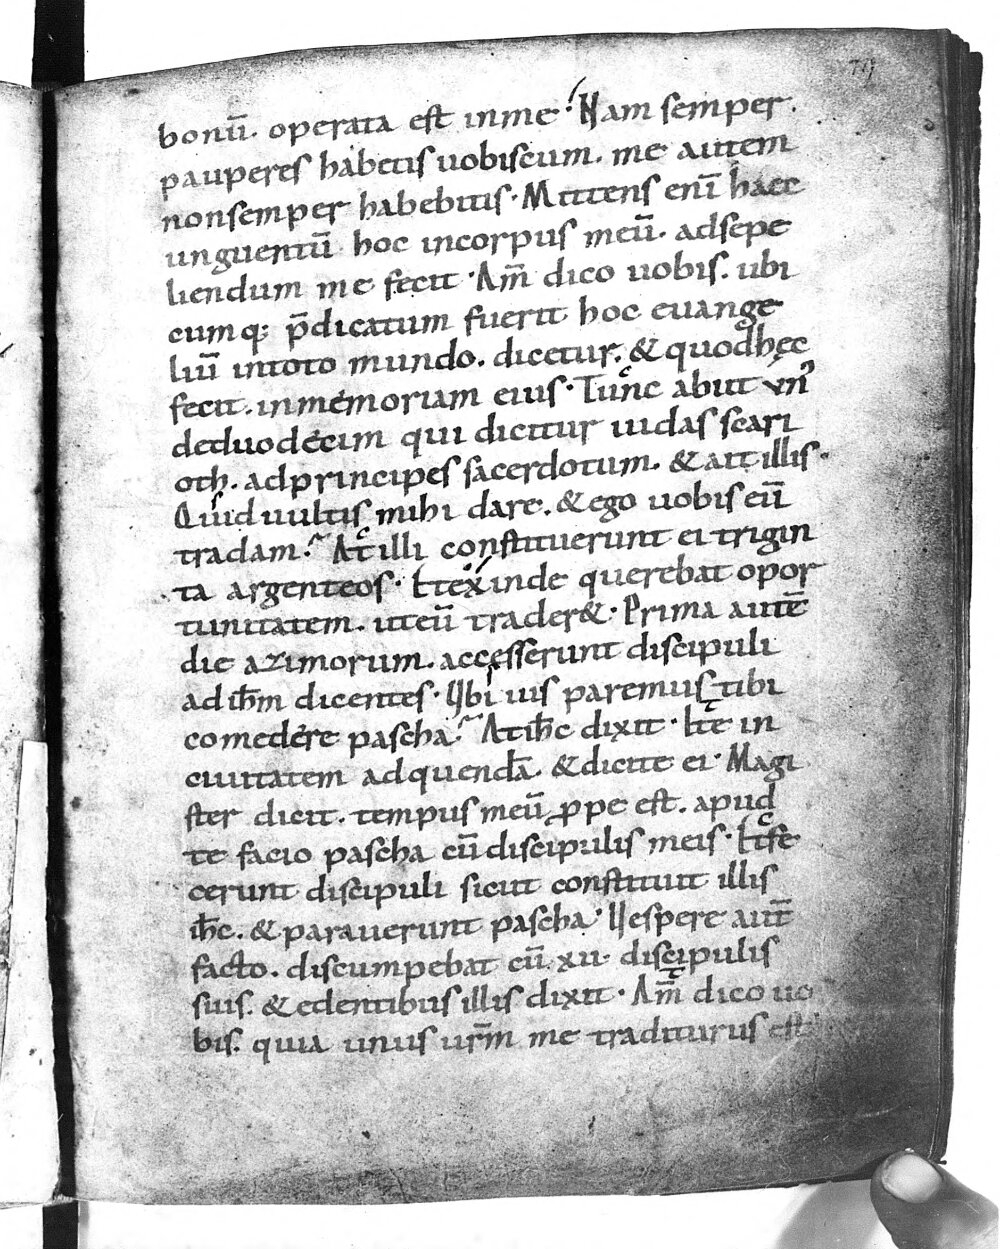 bonū. operata est inme. Nam semper
pauperes habetis uobiscum. me autem
nonsemper habebitis. Mittens enī haec
unguentū hoc incorpus meū. adsepe
liendum me fecit. Am̄ dico uobis. ubi
cumq: p̄dicatum fuerit hoc euange
liū intoto mundo. dicetur. & quodhęc
fecit. inmemoriam eius. Tunc abiit un᾽
deduodecim qui dicitur iudas scari
oth. adprincipes sacerdotum. & ait illis.
Quid uultis mihi dare. & ego uobis eū
tradam. At illi constituerunt ei trigin
ta argenteos. Etexinde querebat opor
tunitatem. uteū trader&. Prima autē
die azimorum. accesserunt discipuli
ad ihm̄ dicentes. Ubi uis paremus tibi
comedere pascha. Atihc̄ dixit. Ite in
ciuitatem adquendā. & dicite ei. Magi
ster dicit. tempus meū ꝓpe est. apud
te facio pascha cū discipulis meis. Etfe
cerunt discipuli sicut constituit illis
ihc̄. & parauerunt pascha. Uespere aut̄
facto. discumpebat cū xii discipulis
suis. & edentibus illis dixit. Am̄ dico uo
bis. quia unus ur̄m me traditurus est